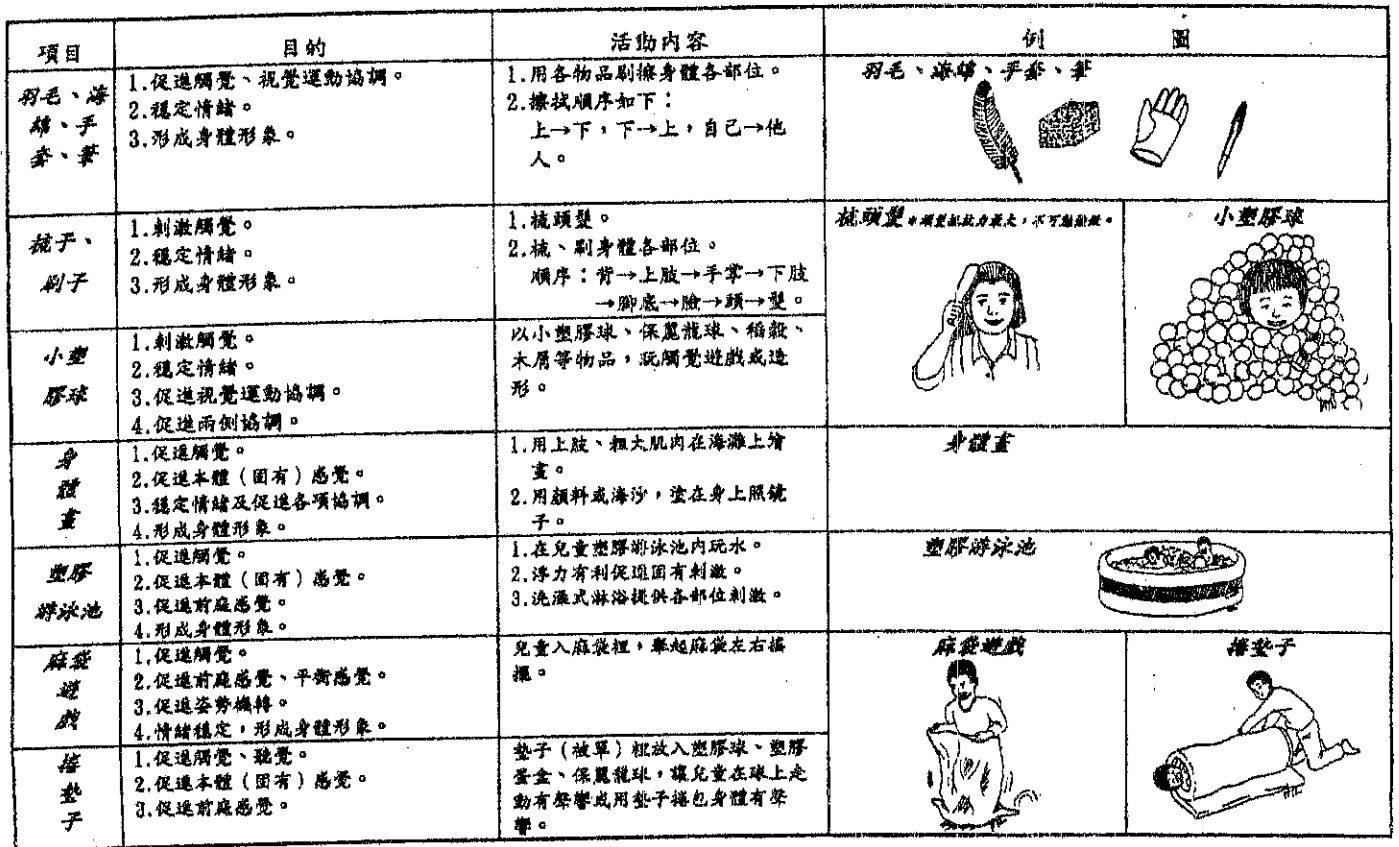 項目 目的 活動內容 例 圖
羽毛、海
綿、手
套、筆
1.促進觸覺、視覺運動協調。
2.穩定情緒。
3.形成身體形象。
1.用各物品刷擦身體各部位。
2.擦拭順序如下：
上→下，下→上，自己→他
人。
羽毛、海綿、手套、筆
梳子、
刷子
1.刺激觸覺。
2.穩定情緒。
3.形成身體形象。
1.梳頭髮。
2.梳、刷身體各部位。
順序：背→上肢→手掌→下肢
→腳底→臉→頭→髮。
梳頭髮
小塑膠球
小塑
膠球
1.刺激觸覺。
2.穩定情緒。
3.促進視覺運動協調。
4.促進兩側協調。
以小塑膠球、保麗龍球、稻穀、
木屑等物品，玩觸覺遊戲或造
形。
身
體
畫
1.促進觸覺。
2.促進本體（固有）感覺。
3.穩定情緒及促進各項協調。
4.形成身體形象。
1.用上肢、粗大肌肉在海灘上繪
畫。
2.用顏料或海沙，塗在身上照鏡
子。
身體畫
塑膠
游泳池
1.促進觸覺。
2.促進本體（固有）感覺。
3.促進前庭感覺。
4.形成身體形象。
1.在兒童塑膠游泳池內玩水。
2.浮力有利促進固有刺激。
3.洗濯式淋浴提供各部位刺激。
塑膠游泳池
麻袋
遊
戲
1.促進觸覺。
2.促進前庭感覺、平衡感覺。
3.促進姿勢機轉。
4.情緒穩定，形成身體形象。
兒童入麻袋裡，舉起麻袋左右搖
擺。
麻袋遊戲
捲墊子
捲
墊
子
1.促進觸覺、聽覺。
2.促進本體（固有）感覺。
3.促進前庭感覺。
墊子（被單）裡放入塑膠球、塑膠
蛋盒、保麗龍球，讓兒童在球上走
動有聲響或用墊子捲包身體有聲
響。